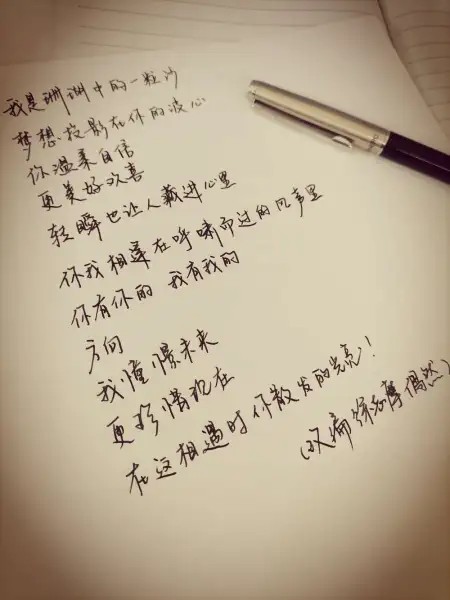 我是珊瑚中的一粒沙
梦想投影在你的波心
你温柔自信
更美好欢喜
轻瞬也让人藏进心里
你我相逢在呼啸而过的风声里
你有你的 我有我的
方向
我憧憬未来
更珍惜现在
在这相遇时你散发的光亮！
(改编徐志摩偶然)